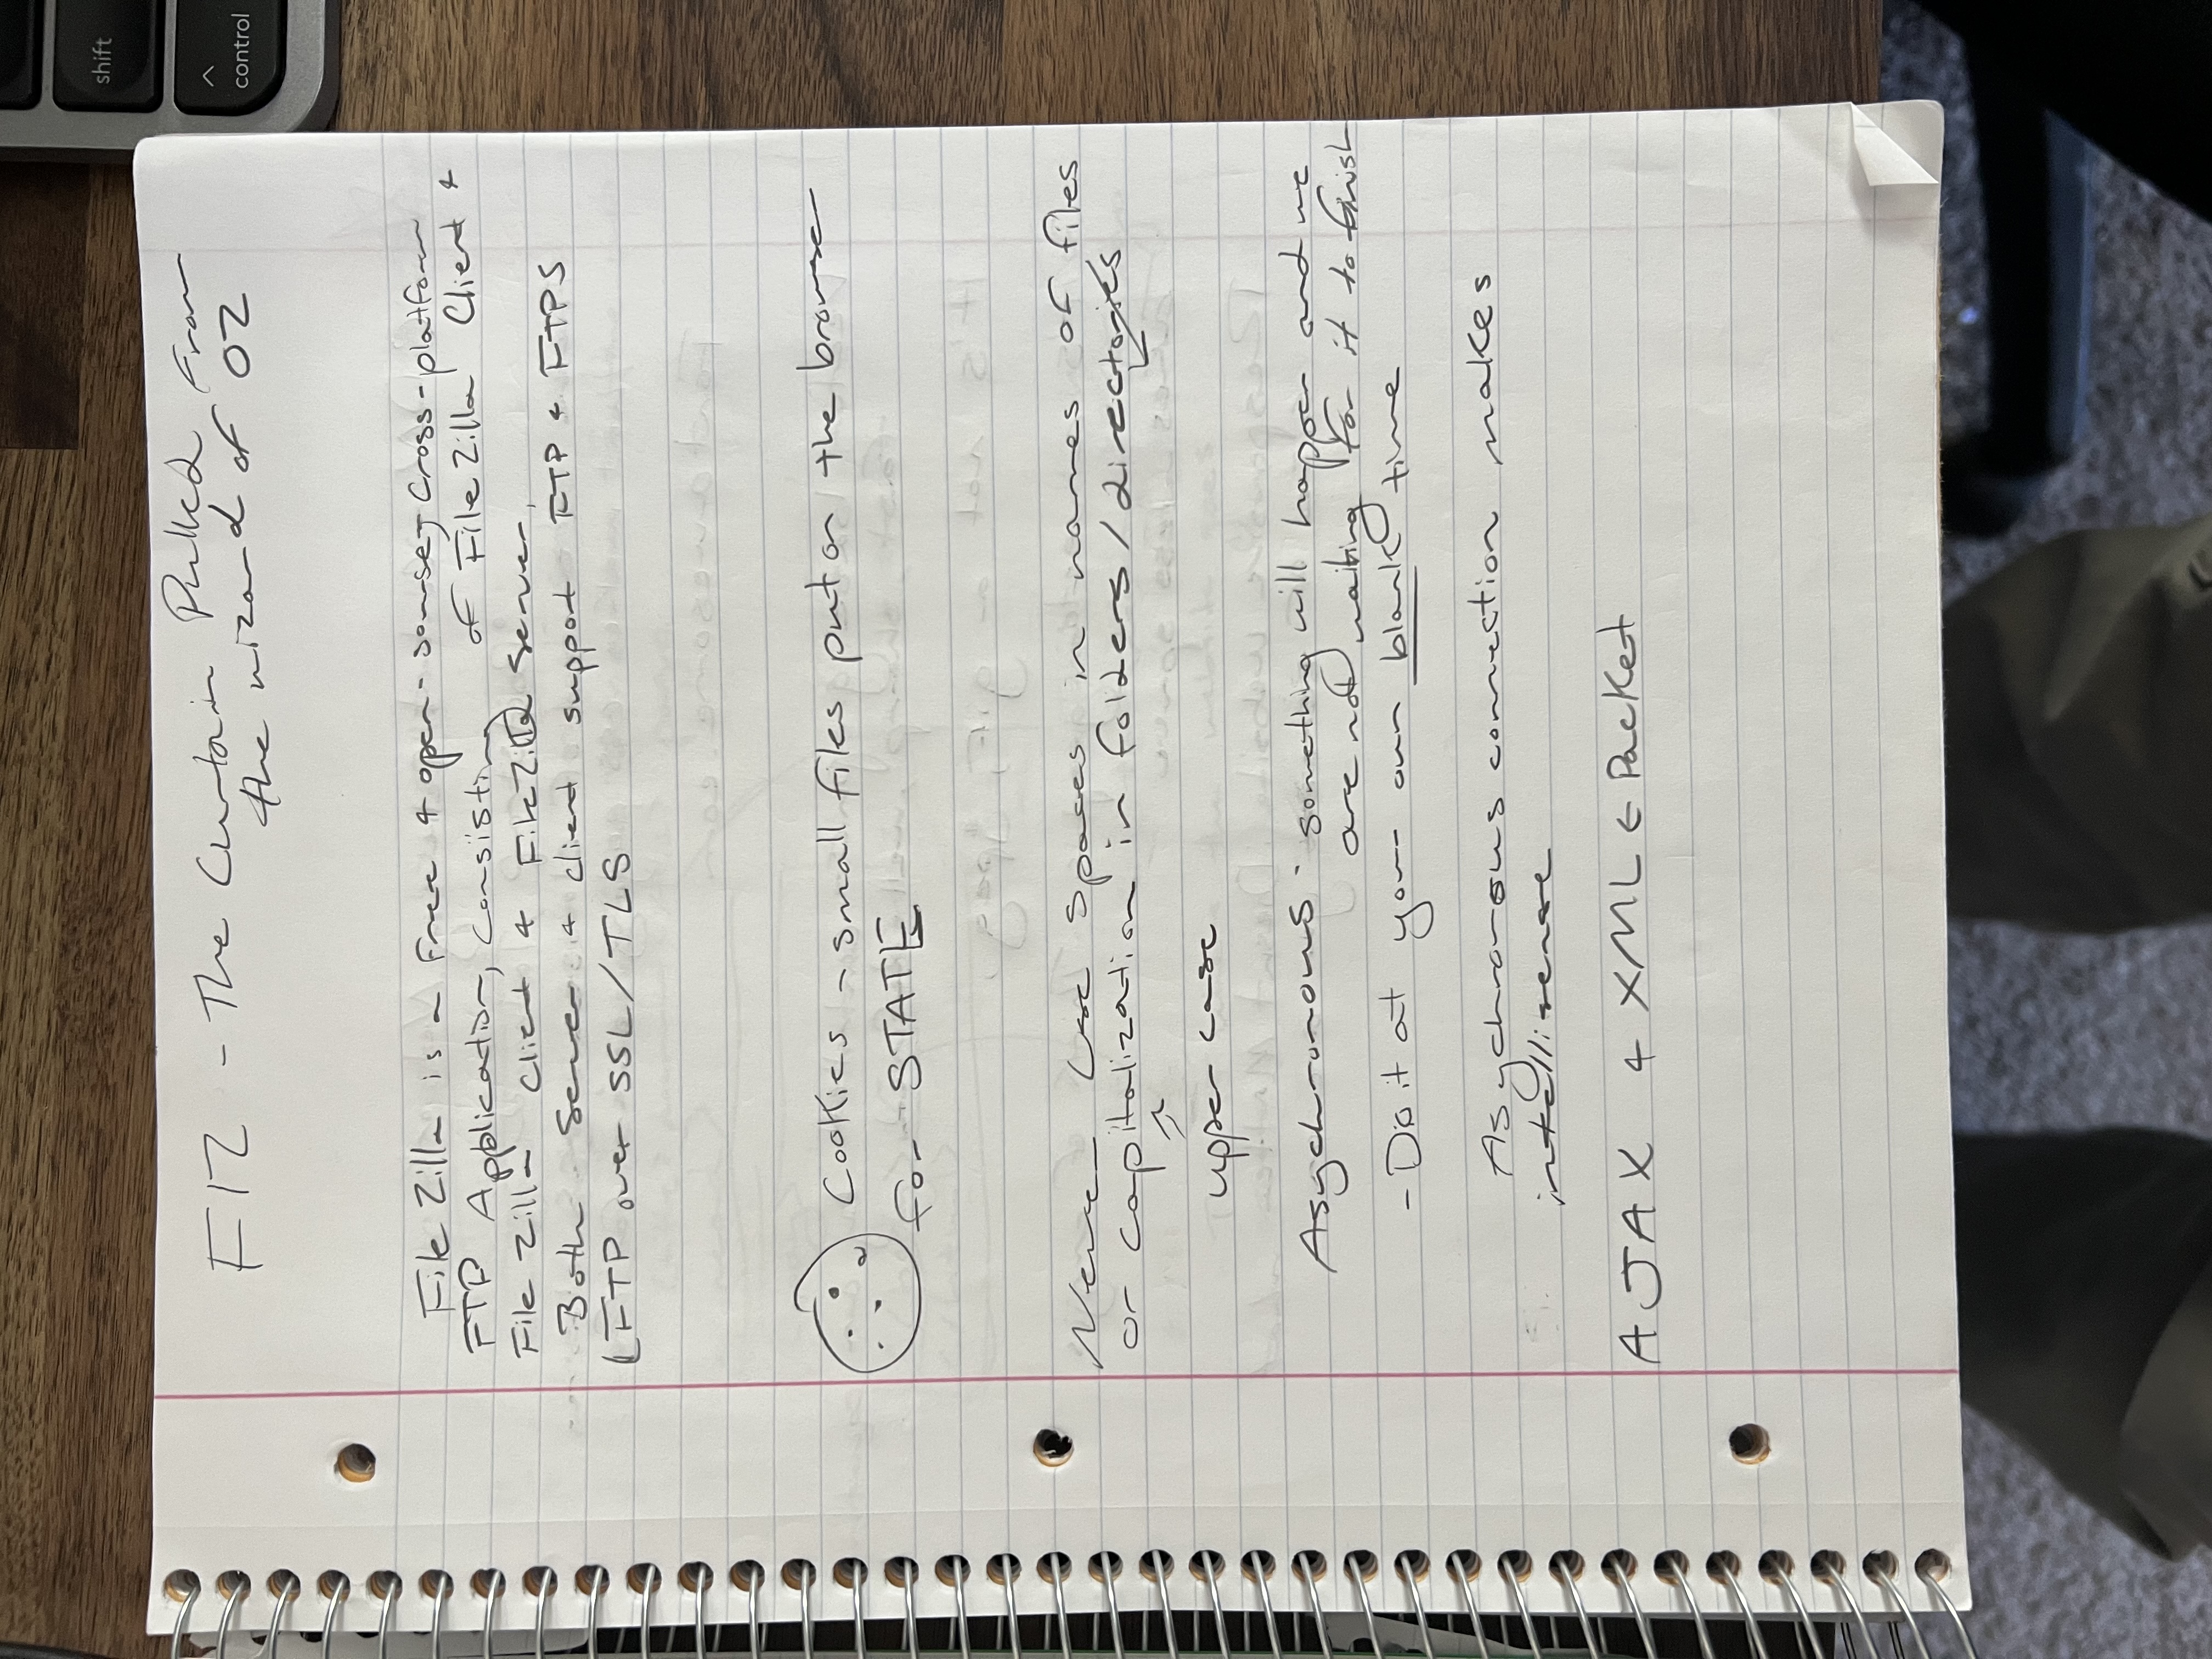 shift
^
control
F12 - The Curtain Pulled From
the wizard of OZ
File Zilla is a Free & open-source, cross-platform
FTP Application, Consisting of File Zilla Client &
File Zilla Client & FileZilla Server.
Both Server & client support FTP & FTPS
(FTP over SSL/TLS
Cookies - small files put on the browser
for STATE
Never Use Spaces in names of files
or capitalization in folders/directories
upper case
Asychronous - something will happen and we
are not waiting for it to finish
- Do it at your own blank time
Asychronous connection makes
intellisense
AJAX & XML ← Packet